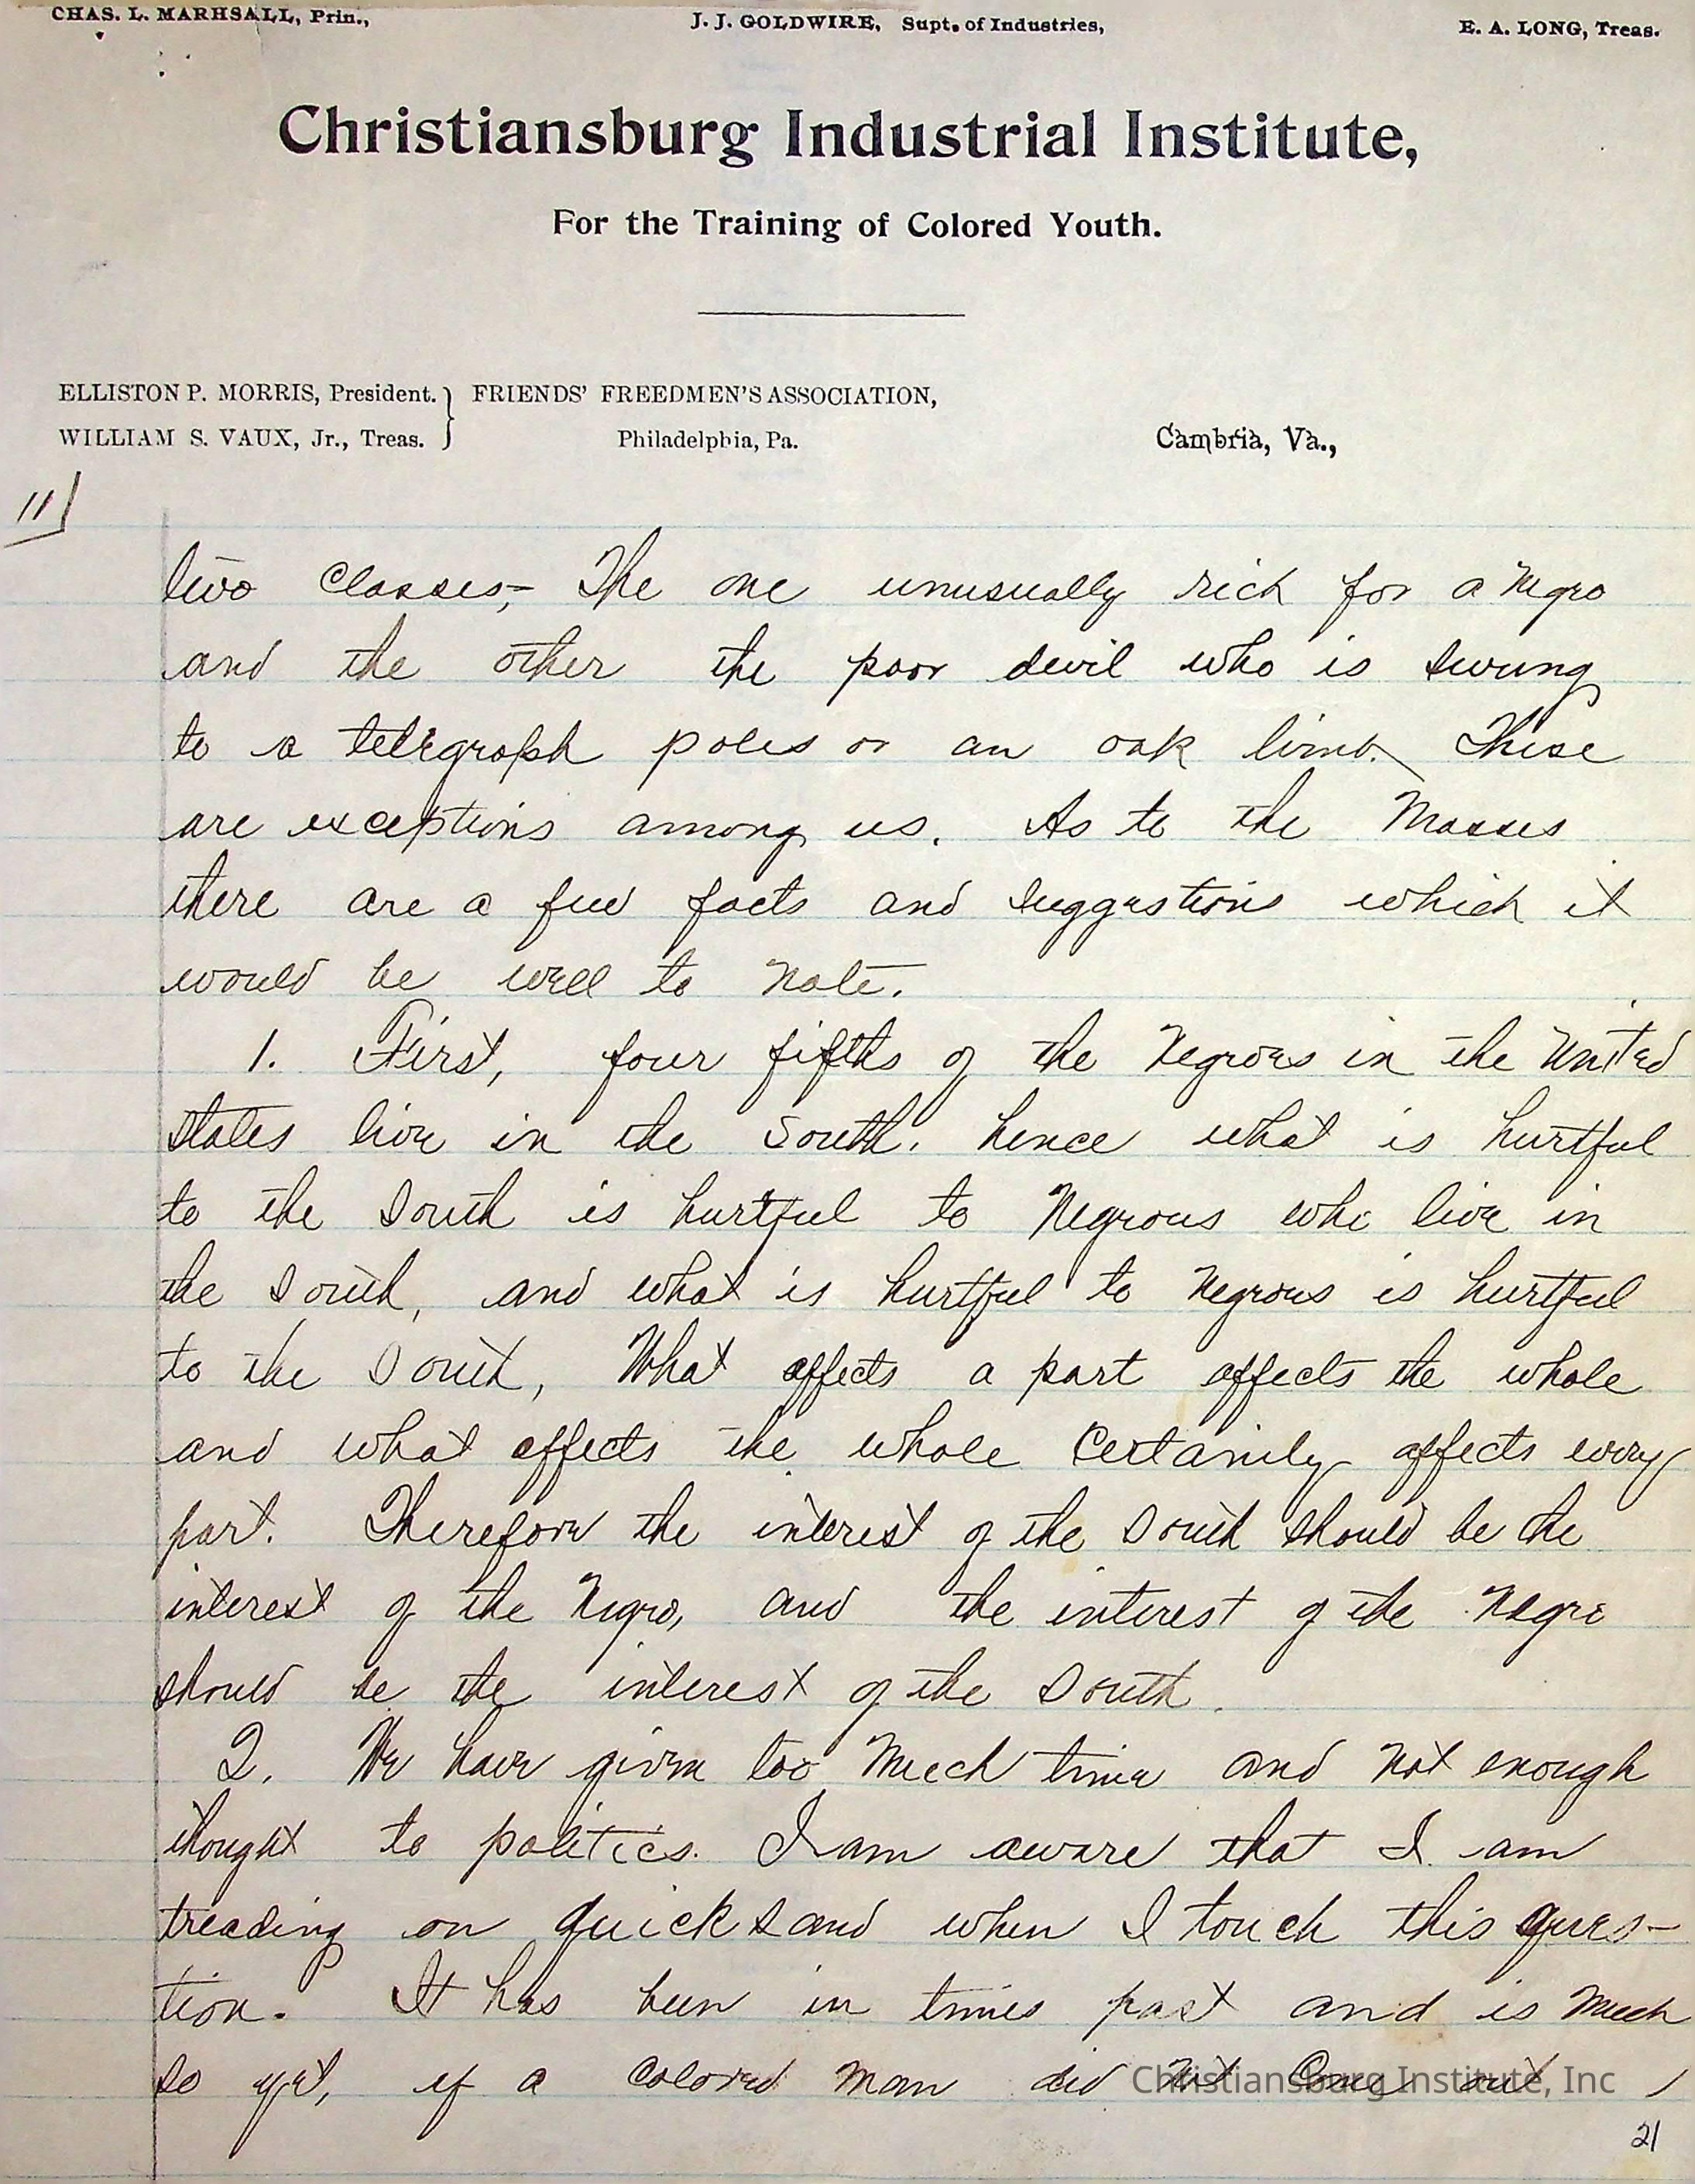 CHAS. L. MARHSALL, Prin., J. J. GOLDWIRE, Supt. of Industries, E. A. LONG, Treas.
Christiansburg Industrial Institute,
For the Training of Colored Youth.
ELLISTON P. MORRIS, President. } FRIENDS' FREEDMEN'S ASSOCIATION,
WILLIAM S. VAUX, Jr., Treas. Philadelphia, Pa. Cambria, Va.,
11
two classes,- The one unusually rich for a Negro
and the other the poor devil who is swung
to a telegraph poles or an oak limb. These
are exceptions among us. As to the Masses
there are a few facts and suggestions which it
would be well to note.
1. First, four fifths of the Negroes in the United
States live in the South. hence what is hurtful
to the South is hurtful to Negroes who live in
the South, and what is hurtful to Negroes is hurtful
to the South, What affects a part affects the whole
and what affects the whole certainly affects every
part. Therefore the interest of the South should be the
interest of the Negro, and the interest of the Negro
should be the interest of the South.
2. We have given too much time and not enough
thought to politics. I am aware that I am
treading on quick sand when I touch this ques-
tion. It has been in times past and is much
so yet, if a colored man did not come out
Christiansburg Institute, Inc
21